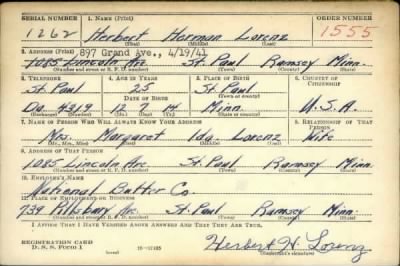 SERIAL NUMBER 1. NAME (Print) ORDER NUMBER
1262 Herbert Herman Lorenz 1555
(First) (Middle) (Last)
2. ADDRESS (Print) 897 Grand Ave., 4/19/41
1085 Lincoln Ave St. Paul Ramsey Minn.
(Number and street or R. F. D. number) (Town) (County) (State)
3. TELEPHONE 4. AGE IN YEARS 5. PLACE OF BIRTH 6. COUNTRY OF CITIZENSHIP
St. Paul 25 St. Paul
DATE OF BIRTH
Da. 4319 12 7 14 Minn. U.S.A.
(Exchange) (Number) (Mo.) (Day) (Yr.) (State or country)
7. NAME OF PERSON WHO WILL ALWAYS KNOW YOUR ADDRESS 8. RELATIONSHIP OF THAT PERSON
Mrs. Margaret Ida Lorenz Wife
(Mr., Mrs., Miss) (First) (Middle) (Last)
9. ADDRESS OF THAT PERSON
1085 Lincoln Ave St. Paul Ramsey Minn
(Number and street or R. F. D. number) (Town) (County) (State)
10. EMPLOYER'S NAME
National Butter Co.
11. PLACE OF EMPLOYMENT OR BUSINESS
739 Pillsbury Ave St. Paul Ramsey Minn.
(Number and street or R. F. D. number) (Town) (County) (State)
I AFFIRM THAT I HAVE VERIFIED ABOVE ANSWERS AND THAT THEY ARE TRUE.
REGISTRATION CARD
D. S. S. FORM 1
Herbert H. Lorenz
(Registrant's signature)